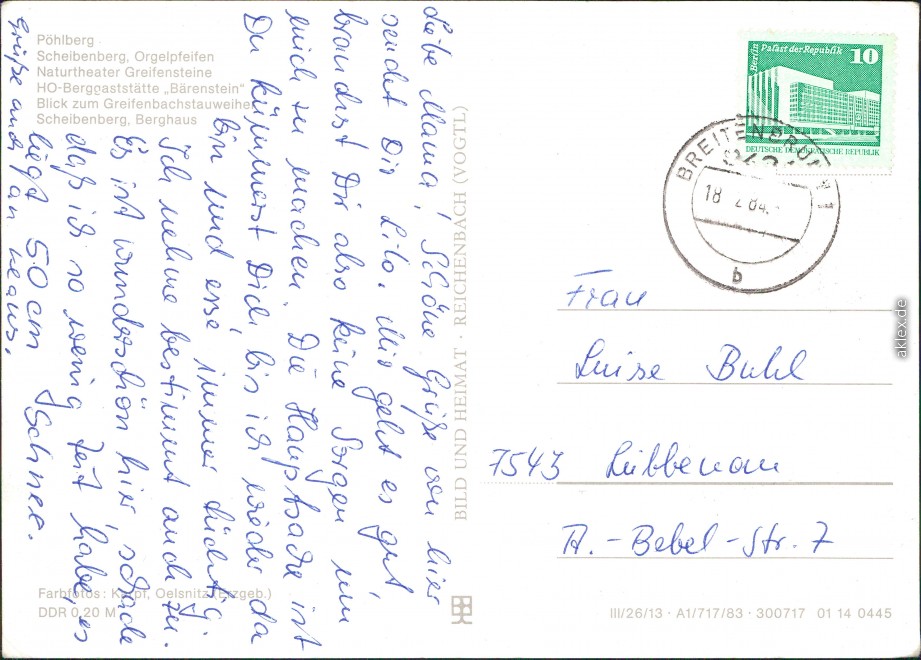 Pöhlberg
Scheibenberg, Orgelpfeifen
Naturtheater Greifensteine
HO-Berggaststätte „Bärenstein"
Blick zum Greifenbachstauweiher
Scheibenberg, Berghaus
Liebe Mama! Schöne Grüße von hier
sendet Dir Lilo. Mir geht es gut,
brauchst Dir also keine Sorgen um
mich zu machen. Die Hauptsache ist
Du kümmerst Dich bis ich wieder da
bin und esse immer tüchtig.
Ich nehme bestimmt auch zu.
Es ist wunderschön hier, schade
daß ich so wenig Zeit habe, es
liegt 50 cm Schnee.
Grüße auch an Klaus.
Farbfotos: Kampf, Oelsnitz (Erzgeb.)
DDR 0,20 M
BILD UND HEIMAT · REICHENBACH (VOGTL)
Berlin Palast der Republik 10
DEUTSCHE DEMOKRATISCHE REPUBLIK
BREITENBRUNN 1
18. 2. 84.
b
Frau
Luise Buhl
7543 Lübbenau
A.-Bebel-Str. 7
III/26/13 · A1/717/83 · 300717 01 14 0445
aklex.de